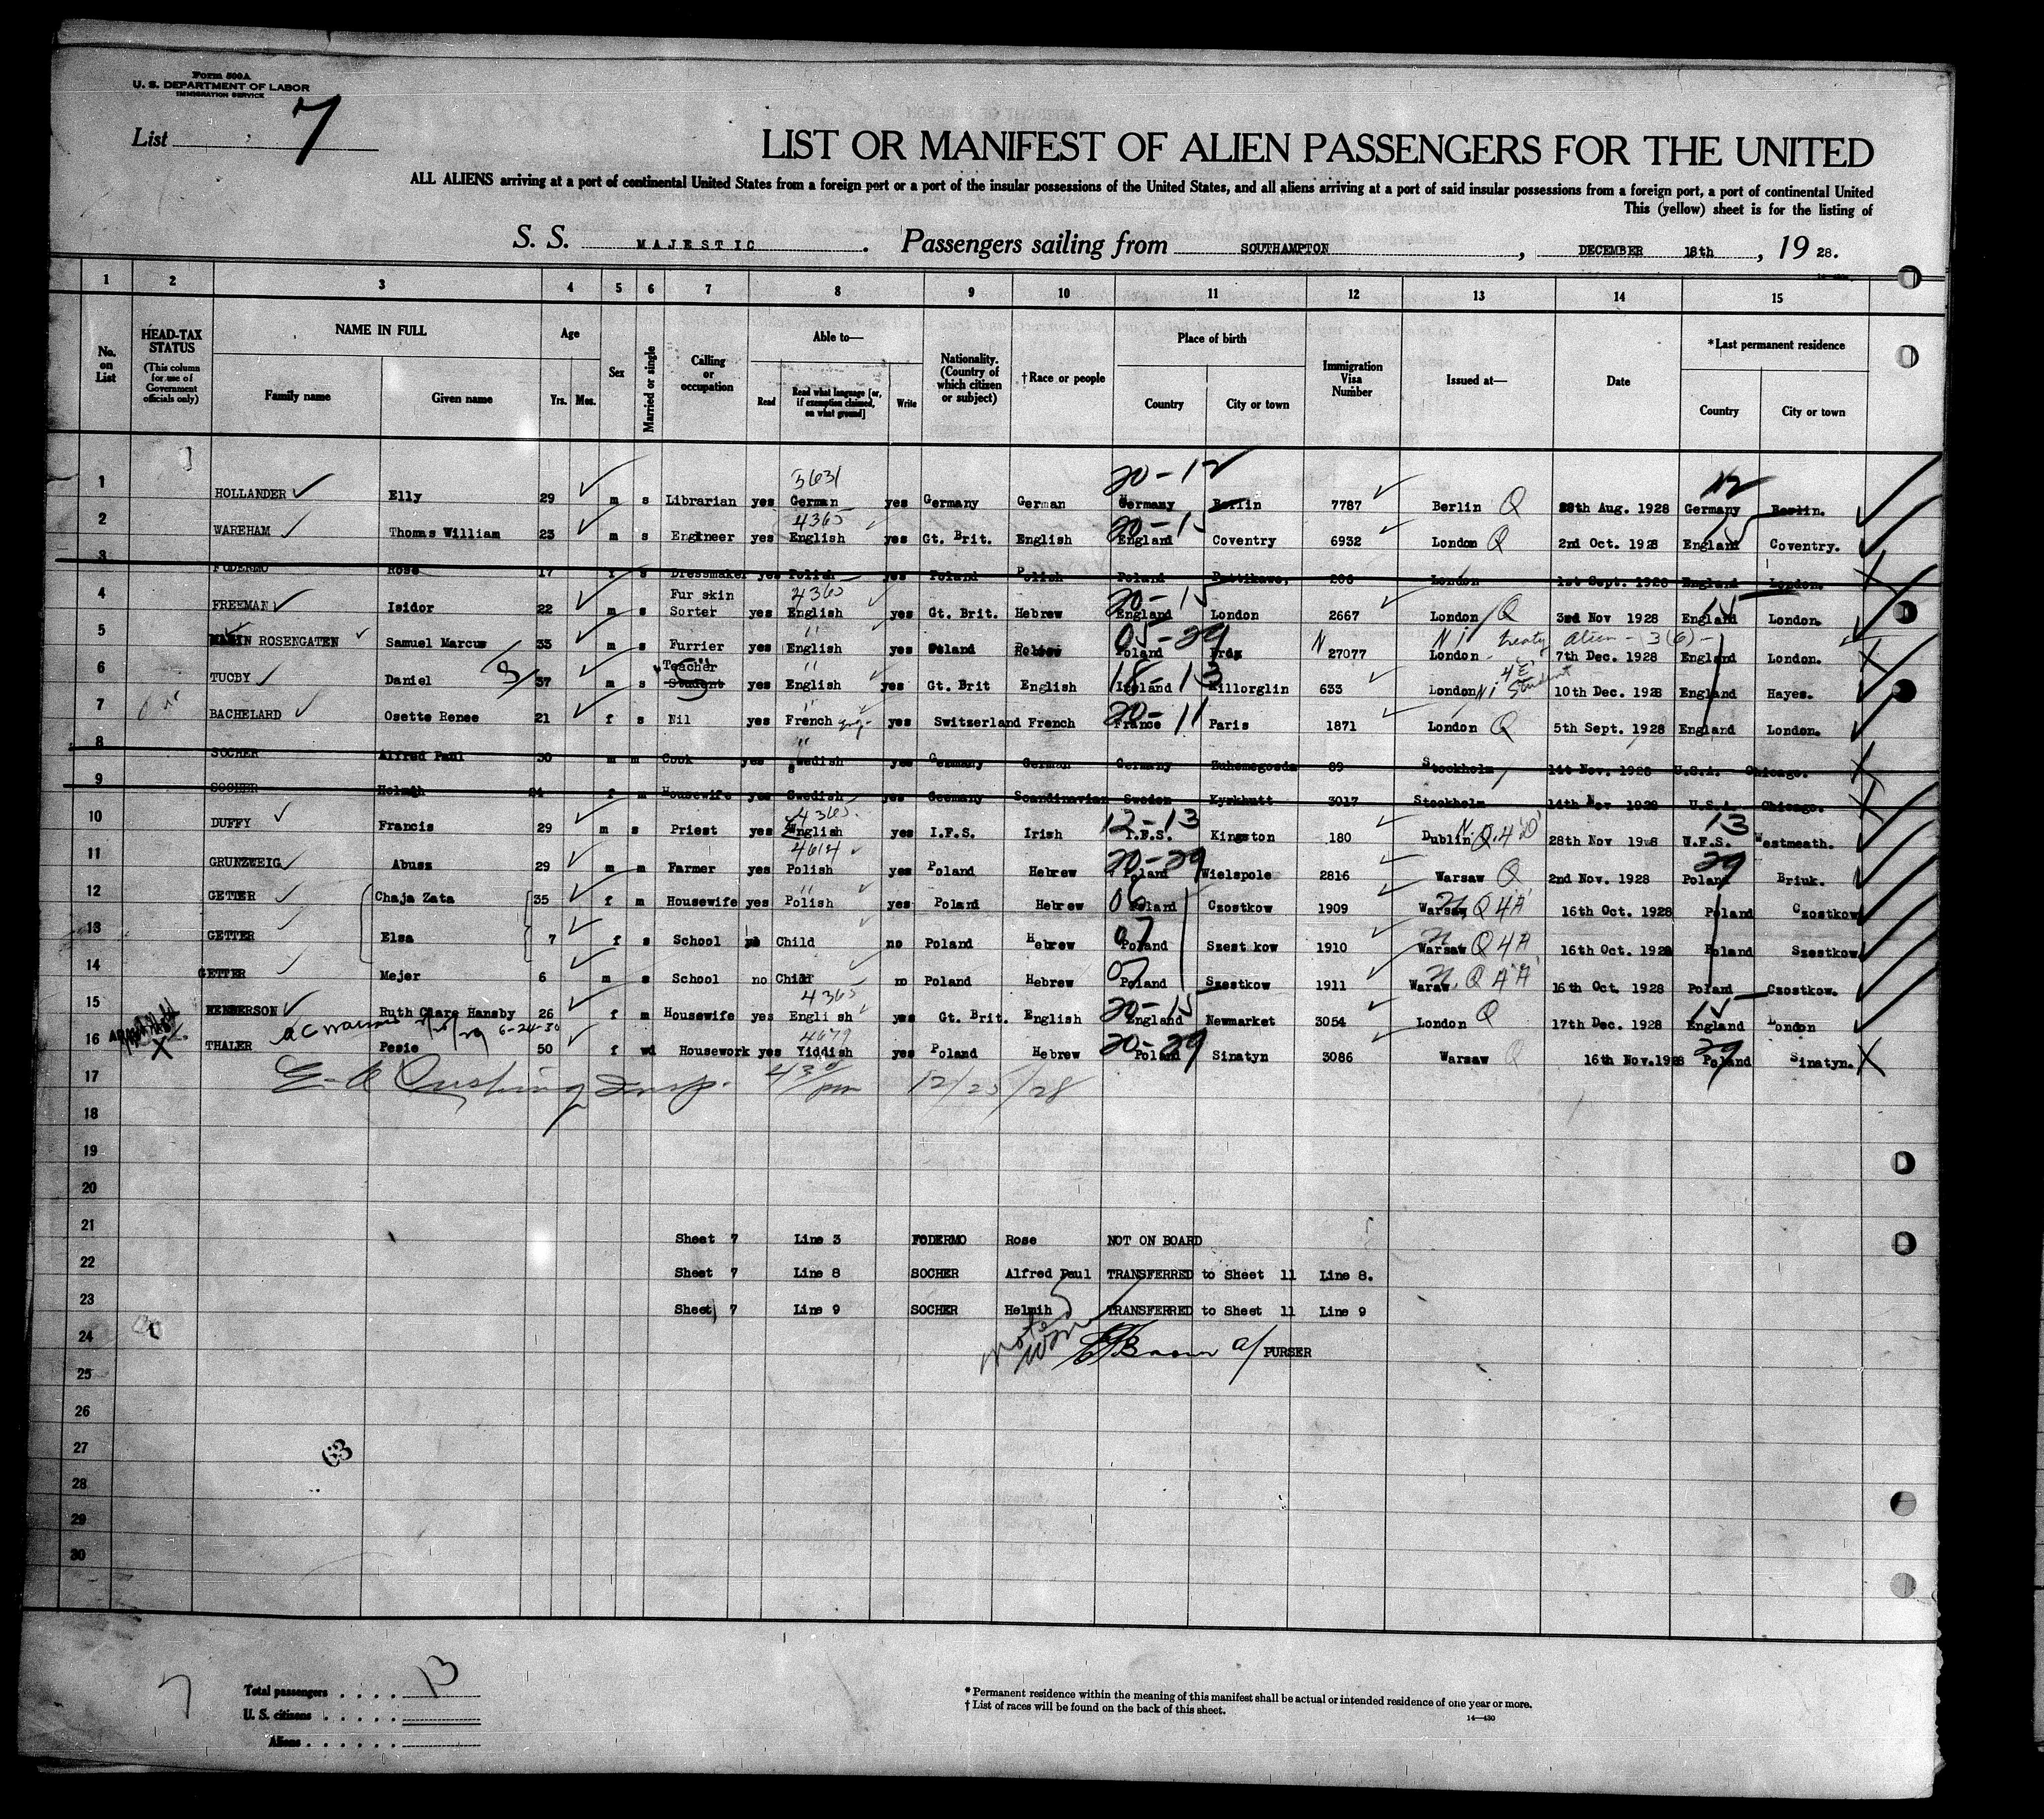 Form 500A
U. S. DEPARTMENT OF LABOR
IMMIGRATION SERVICE
List 7
LIST OR MANIFEST OF ALIEN PASSENGERS FOR THE UNITED
ALL ALIENS arriving at a port of continental United States from a foreign port or a port of the insular possessions of the United States, and all aliens arriving at a port of said insular possessions from a foreign port, a port of continental United
This (yellow) sheet is for the listing of
S. S. MAJESTIC. Passengers sailing from SOUTHAMPTON, DECEMBER 18th, 19 28.
1 2 3 4 5 6 7 8 9 10 11 12 13 14 15
No. on List
HEAD-TAX STATUS (This column for use of Government officials only)
NAME IN FULL
Family name Given name
Age
Yrs. Mos.
Sex
Married or single
Calling or occupation
Able to—
Read Read what language [or, if exemption claimed, on what ground] Write
Nationality. (Country of which citizen or subject)
†Race or people
Place of birth
Country City or town
Immigration Visa Number
Issued at—
Date
*Last permanent residence
Country City or town
3631 20-12 12
1 HOLLANDER Elly 29 m s Librarian yes German yes Germany German Germany Berlin 7787 Berlin Q 28th Aug. 1928 Germany Berlin.
4365 20-15 15
2 WAREHAM Thomas William 23 m s Engineer yes English yes Gt. Brit. English England Coventry 6932 London Q 2nd Oct. 1928 England Coventry.
3 FODERMO Rose 17 f s Dressmaker yes Polish yes Poland Polish Poland 206 London 1st Sept. 1928 England London.
4365 20-15 15
4 FREEMAN Isidor 22 m s Fur skin Sorter yes English yes Gt. Brit. Hebrew England London 2667 London Q 3rd Nov 1928 England London.
" 05-29 N N i treaty alien - 3(6) -
5 ROSENGATEN Samuel Marcus 33 m s Furrier yes English yes Poland Hebrew Poland 27077 London 7th Dec. 1928 England London.
" 18-13 4E Student
6 TUCBY Daniel 37 m s Teacher Student yes English yes Gt. Brit English Ireland Killorglin 633 London 10th Dec. 1928 England Hayes.
" 20-11
7 BACHELARD Osette Renee 21 f s Nil yes French yes Switzerland French France Paris 1871 London Q 5th Sept. 1928 England London.
"
8 SOCHER Alfred Paul 30 m m Cook yes Swedish yes Germany German Germany 89 Stockholm 14t Nov. 1928 U.S.A. Chicago.
9 SOCHER Helmih f m Housewife yes Swedish yes Germany Scandinavian Sweden Kyrkhutt 3017 Stockholm 14th Nov 1928 U.S.A. Chicago.
4365 12-13 13
10 DUFFY Francis 29 m s Priest yes English yes I.F.S. Irish I.F.S. Kingston 180 Dublin Q.4'D' 28th Nov 1928 W.F.S. Westmeath.
4614 20-29 29
11 GRUNZWEIG Abusz 29 m m Farmer yes Polish yes Poland Hebrew Poland Wielspole 2816 Warsaw Q 2nd Nov. 1928 Poland Briuk.
" 06
12 GETTER Chaja Zata 35 f m Housewife yes Polish yes Poland Hebrew Poland Czostkow 1909 Warsaw Q 4A 16th Oct. 1928 Poland Czostkow
07
13 GETTER Elsa 7 f s School no Child no Poland Hebrew Poland Szestkow 1910 Warsaw Q 4A 16th Oct. 1928 Poland Szestkow
07
14 GETTER Mejer 6 m s School no Child no Poland Hebrew Poland Szestkow 1911 Waraw. Q 4"A" 16th Oct. 1928 Poland Czostkow.
4365 20-15 15
15 HENDERSON Ruth Clare Hansby 26 f m Housewife yes English yes Gt. Brit. English England Newmarket 3054 London Q 17th Dec. 1928 England London
6-24-30 4679 20-29 29
16 X THALER Pesie 50 f wd Housework yes Yiddish yes Poland Hebrew Poland Sinatyn 3086 Warsaw Q 16th Nov.1928 Poland Sinatyn.
17 E. A Cushing Insp. 4 30/pm 12/25/28
18
19
20
21 Sheet 7 Line 3 FODERMO Rose NOT ON BOARD
22 Sheet 7 Line 8 SOCHER Alfred Paul TRANSFERRED to Sheet 11 Line 8.
23 Sheet 7 Line 9 SOCHER Helmih TRANSFERRED to Sheet 11 Line 9
24 noted
a/ PURSER
25
26
27 63
28
29
30
7
Total passengers . . . . 13
U. S. citizens . . . . .
Aliens . . . . . .
* Permanent residence within the meaning of this manifest shall be actual or intended residence of one year or more.
† List of races will be found on the back of this sheet.
14—430